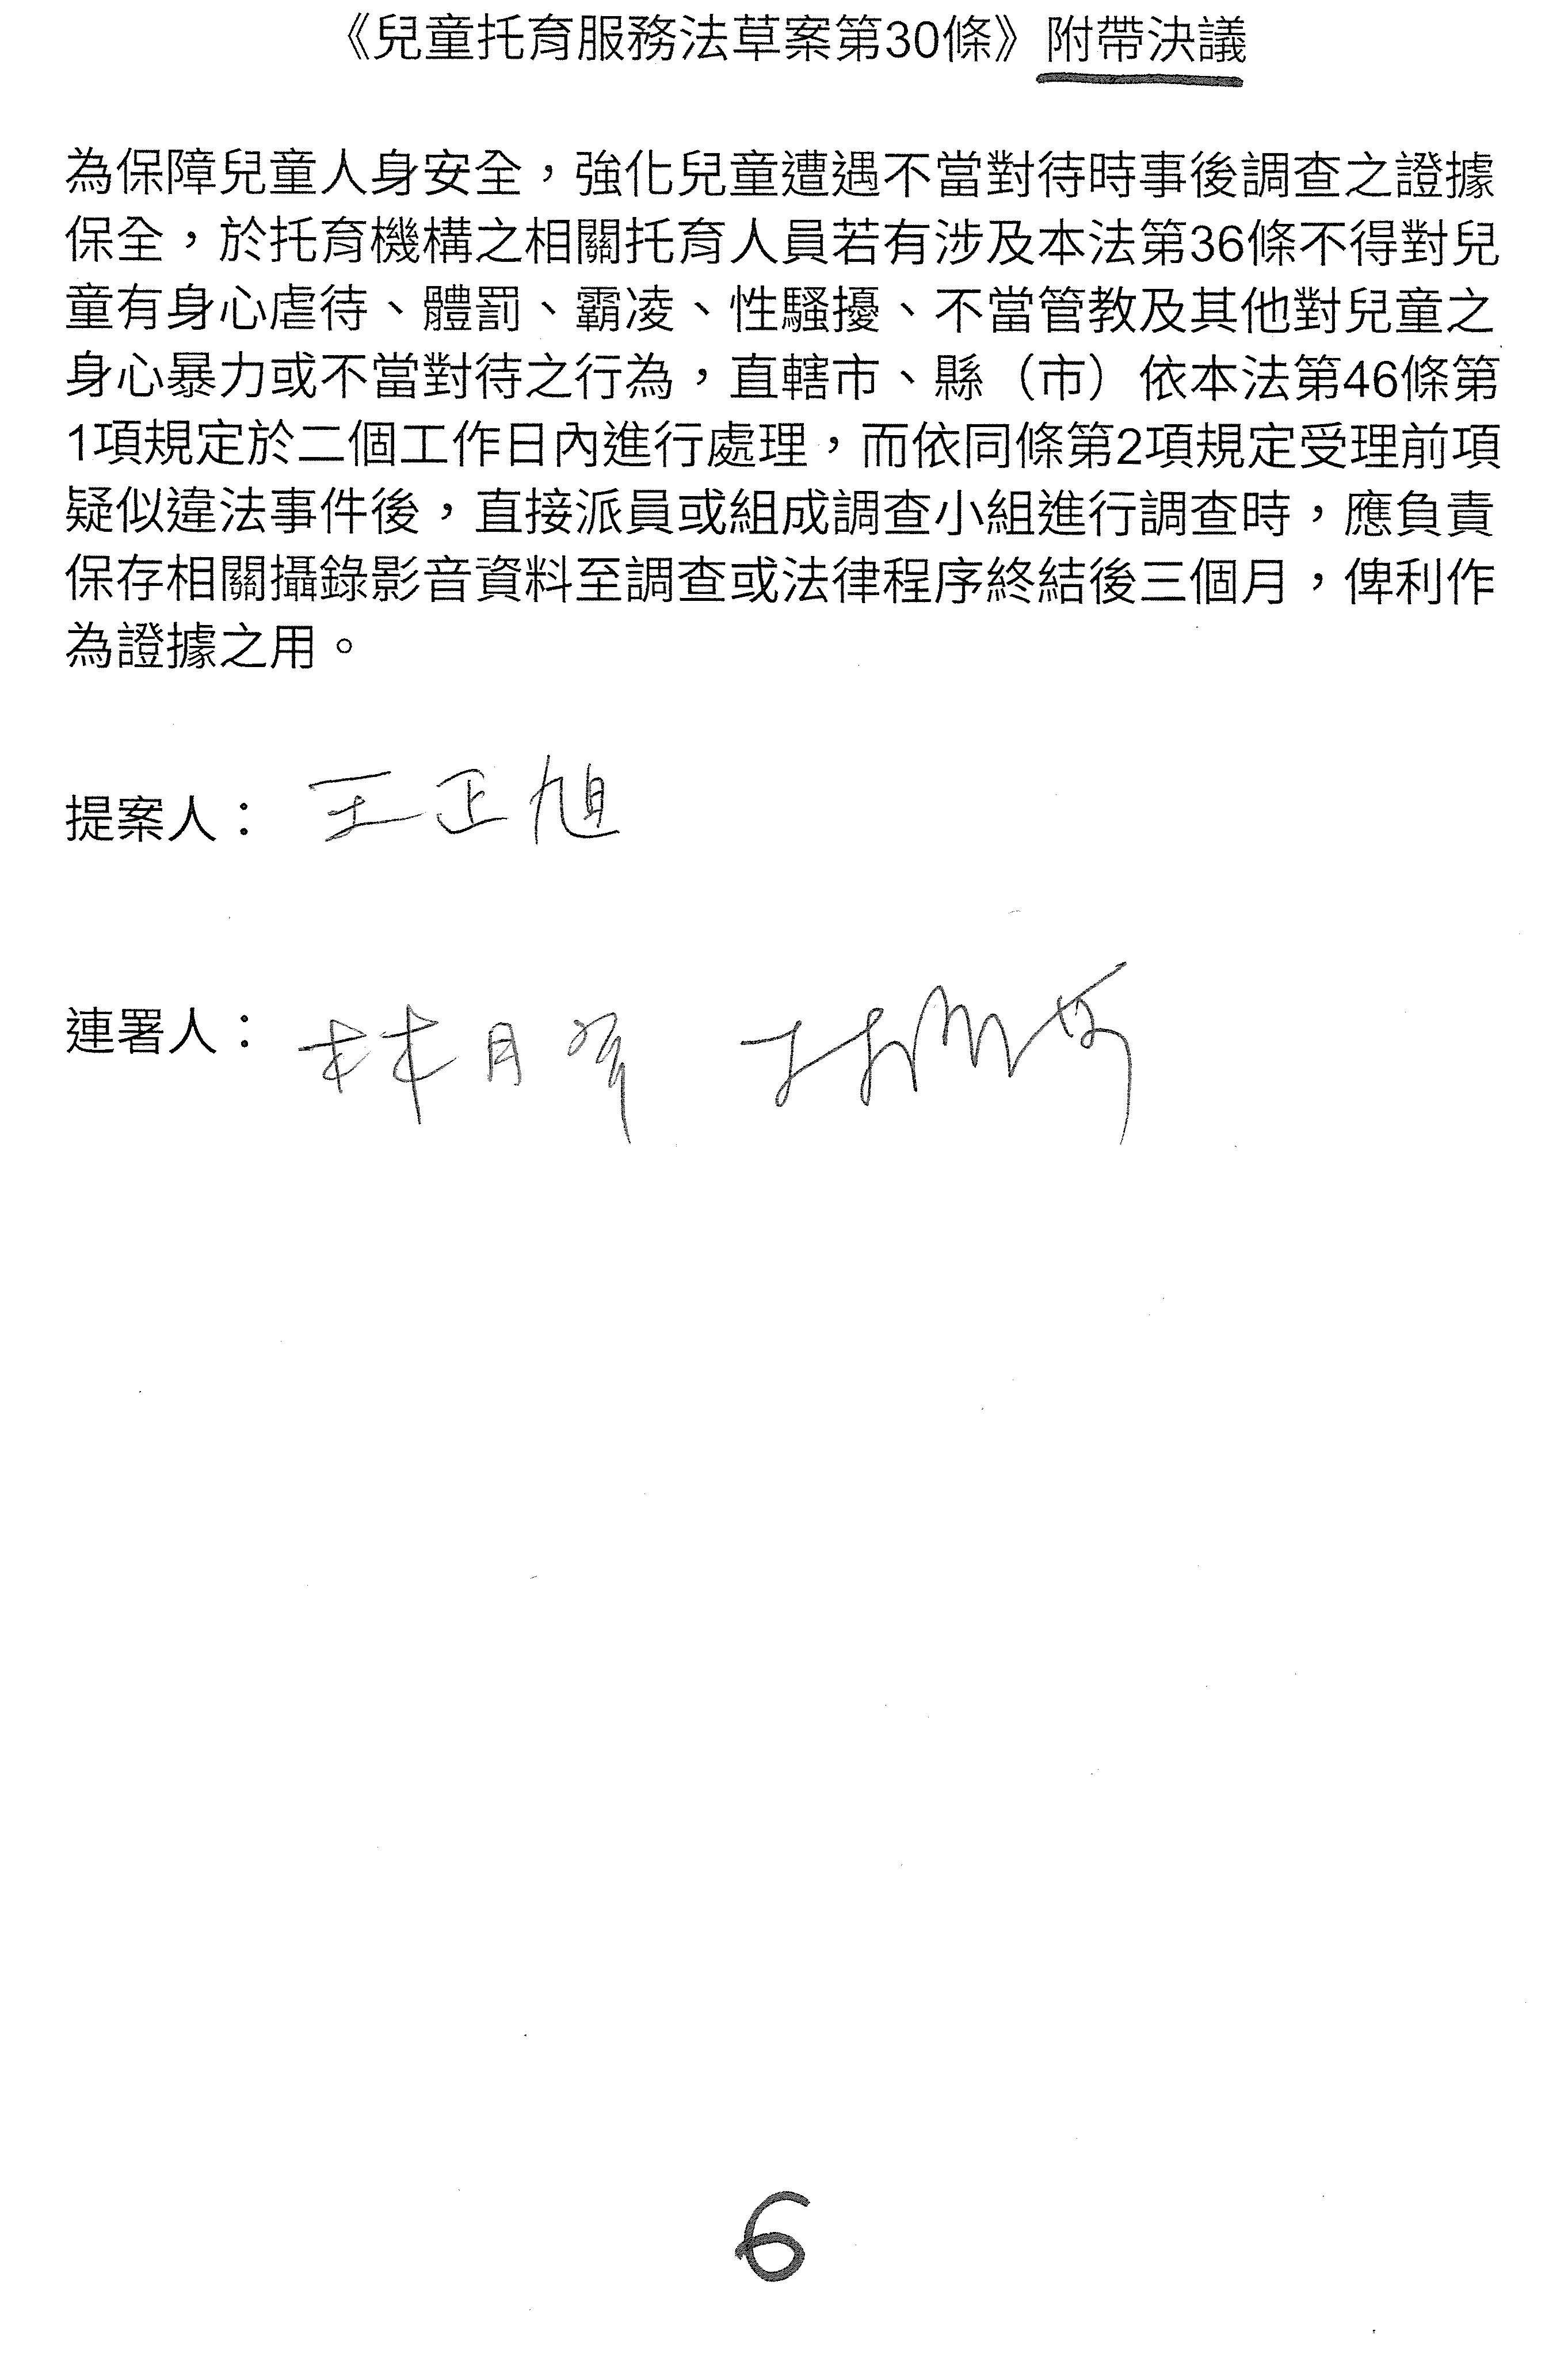 《兒童托育服務法草案第30條》附帶決議
為保障兒童人身安全，強化兒童遭遇不當對待時事後調查之證據
保全，於托育機構之相關托育人員若有涉及本法第36條不得對兒
童有身心虐待、體罰、霸凌、性騷擾、不當管教及其他對兒童之
身心暴力或不當對待之行為，直轄市、縣（市）依本法第46條第
1項規定於二個工作日內進行處理，而依同條第2項規定受理前項
疑似違法事件後，直接派員或組成調查小組進行調查時，應負責
保存相關攝錄影音資料至調查或法律程序終結後三個月，俾利作
為證據之用。
提案人： 王正旭
連署人： 林月琴 林
6